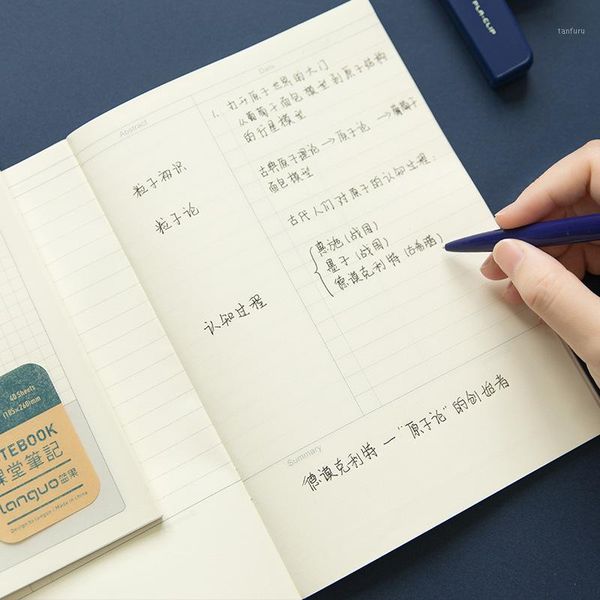 PLA-CLIP
tanfuru
Date
Abstract
1. 打开原子世界的大门
从葡萄干面包模型到原子结构
的行星模型
粒子初识
古典原子理论→原子论→葡萄干
面包模型
粒子论
古代人们对原子的认知过程:
惠施(战国)
墨子(战国)
德谟克利特(古希腊)
认知过程
Summary
德谟克利特—"原子论"的创始者
40 Sheets
(185×260)mm
NOTEBOOK
課堂筆記
Languo 蓝果
Design by Languo / Made in China